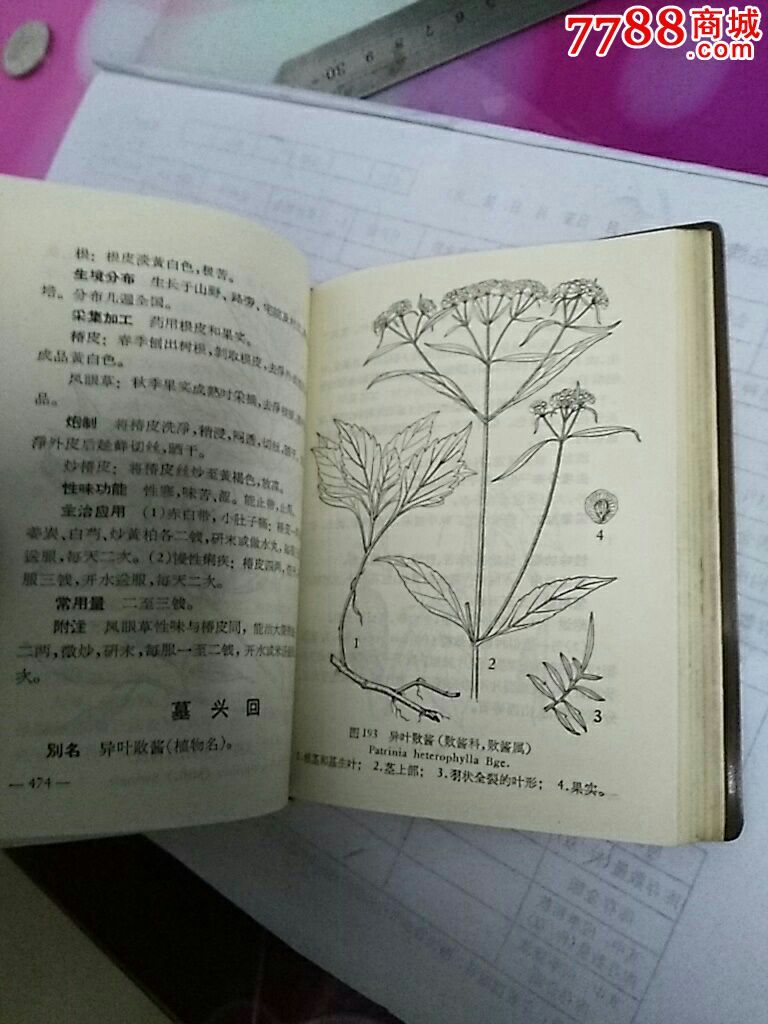 7788商城
.com
30
根：根皮淡黄白色，根苦。
生境分布 生长于山野、路旁、宅院
培。分布几遍全国。
采集加工 药用根皮和果实。
椿皮：春季刨出树根，剥取根皮，去净外
成品黄白色。
凤眼草：秋季果实成熟时采摘，去净
品。
炮制 将椿皮洗淨，稍浸，闷透，切丝，晒干
淨外皮后趁鲜切丝，晒干。
炒椿皮：将椿皮丝炒至黄褐色，放凉。
性味功能 性寒，味苦、涩。能止带，止泻，
主治应用 (1)赤白带，小肚子痛：椿皮一
姜炭、白芍、炒黄柏各二钱，研末或做水丸，每
送服，每天二次。(2)慢性痢疾：椿皮四两，
服三钱，开水送服，每天二次。
常用量 二至三钱。
附注 凤眼草性味与椿皮同，能治大便
二两，微炒，研末，每服一至二钱，开水或米汤
次。
墓头回
别名 异叶败酱(植物名)。
— 474 —
1
2
3
4
图 193 异叶败酱(败酱科，败酱属)
Patrinia heterophylla Bge.
1.根茎和基生叶； 2.茎上部； 3.羽状全裂的叶形； 4.果实。